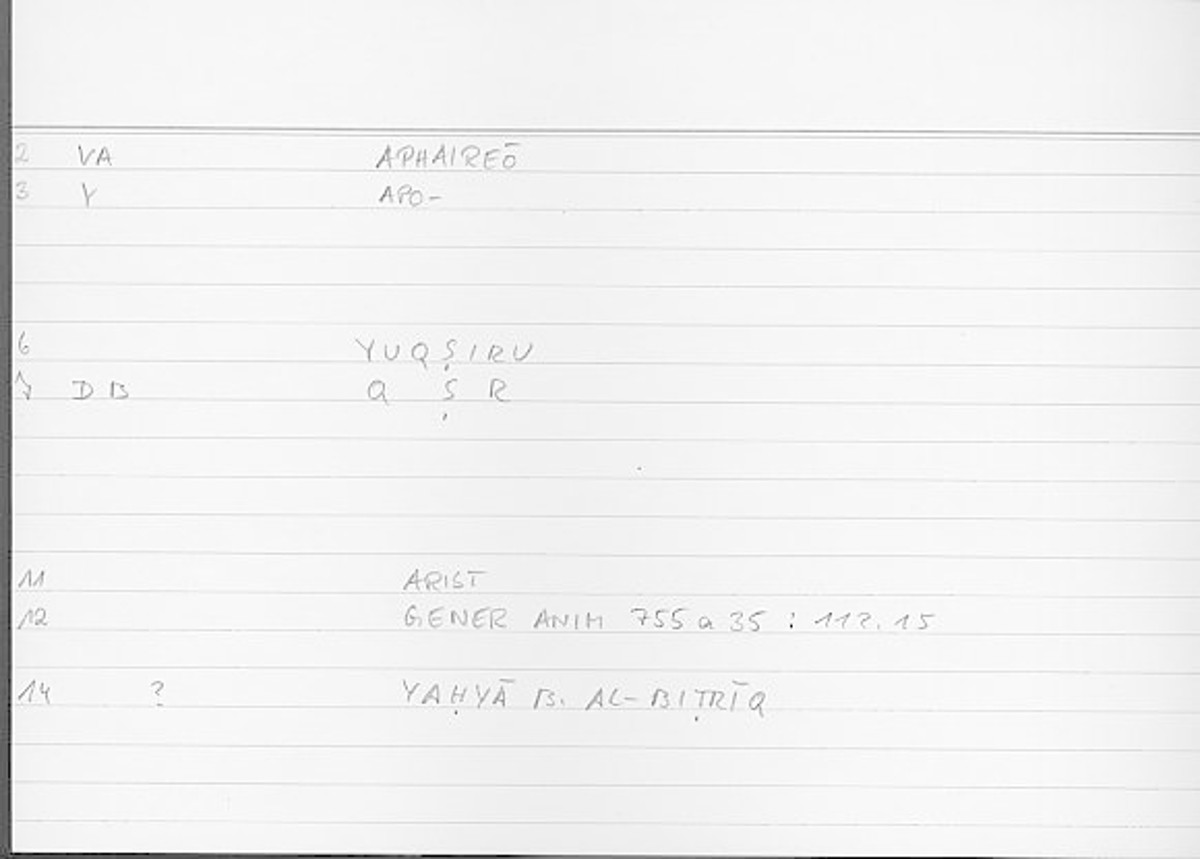 2 VA APHAIREŌ
3 Y APO-
6 YUQṢIRU
7 DB Q Ṣ R
11 ARIST
12 GENER ANIM 755 a 35 : 112.15
14 ? YAḤYĀ B. AL-BIṬRĪQ